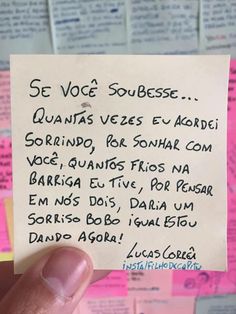 SE VOCÊ SOUBESSE...
QUANTAS VEZES EU ACORDEI
SORRINDO, POR SONHAR COM
VOCÊ, QUANTOS FRIOS NA
BARRIGA EU TIVE, POR PENSAR
EM NÓS DOIS, DARIA UM
SORRISO BOBO IGUAL ESTOU
DANDO AGORA!
LUCAS CORRÊA
INSTA/FILHODECAPITU